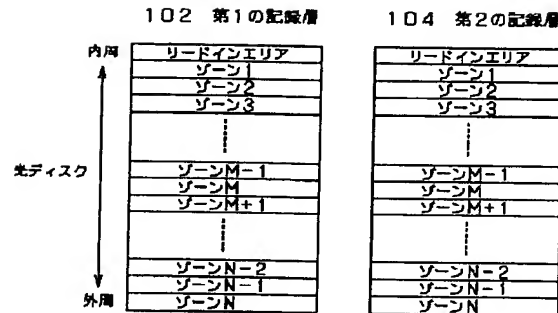 102 第1の記録層
104 第2の記録層
内周
光ディスク
外周
リードインエリア
ゾーン1
ゾーン2
ゾーン3
ゾーンM-1
ゾーンM
ゾーンM+1
ゾーンN-2
ゾーンN-1
ゾーンN
リードインエリア
ゾーン1
ゾーン2
ゾーン3
ゾーンM-1
ゾーンM
ゾーンM+1
ゾーンN-2
ゾーンN-1
ゾーンN